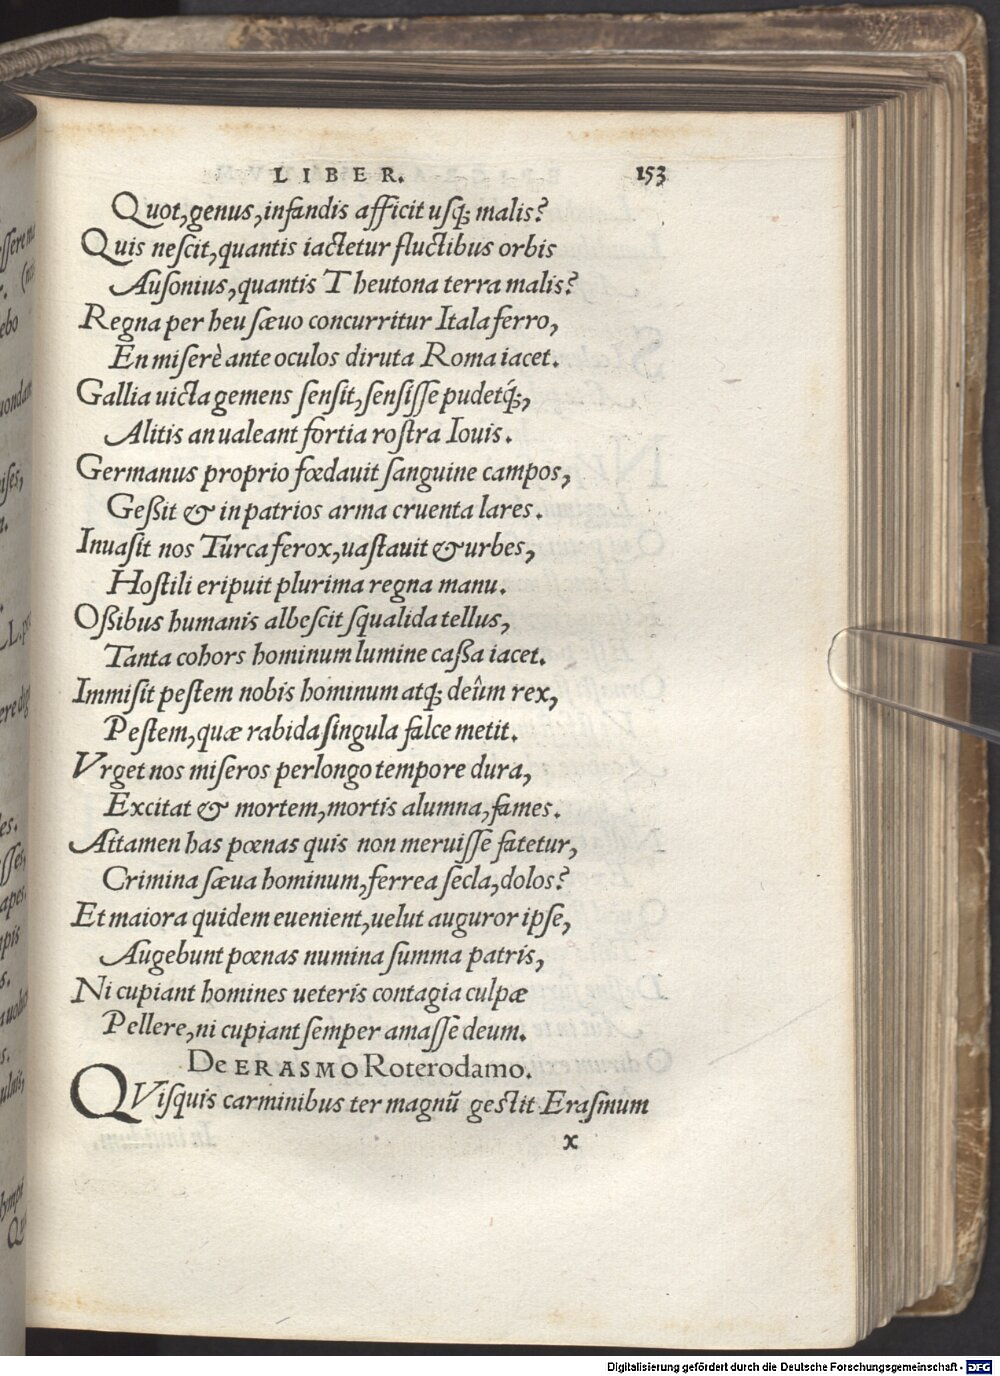 LIBER. 153
Quot, genus, infandis afficit usq; malis?
Quis nescit, quantis iactetur fluctibus orbis
Ausonius, quantis Theutona terra malis?
Regna per heu sæuo concurritur Itala ferro,
En miserè ante oculos diruta Roma iacet.
Gallia uicta gemens sensit, sensisse pudetq́;,
Alitis an ualeant fortia rostra Iouis.
Germanus proprio fœdauit sanguine campos,
Geßit & in patrios arma cruenta lares.
Inuasit nos Turca ferox, uastauit & urbes,
Hostili eripuit plurima regna manu.
Oßibus humanis albescit squalida tellus,
Tanta cohors hominum lumine caßa iacet.
Immisit pestem nobis hominum atq; deûm rex,
Pestem, quæ rabida singula falce metit.
Vrget nos miseros perlongo tempore dura,
Excitat & mortem, mortis alumna, fames.
Attamen has pœnas quis non meruisse fatetur,
Crimina sæua hominum, ferrea secla, dolos?
Et maiora quidem euenient, uelut auguror ipse,
Augebunt pœnas numina summa patris,
Ni cupiant homines ueteris contagia culpæ
Pellere, ni cupiant semper amasse deum.
De ERASMO Roterodamo.
QVisquis carminibus ter magnũ gestit Erasmum
x
Digitalisierung gefördert durch die Deutsche Forschungsgemeinschaft - DFG